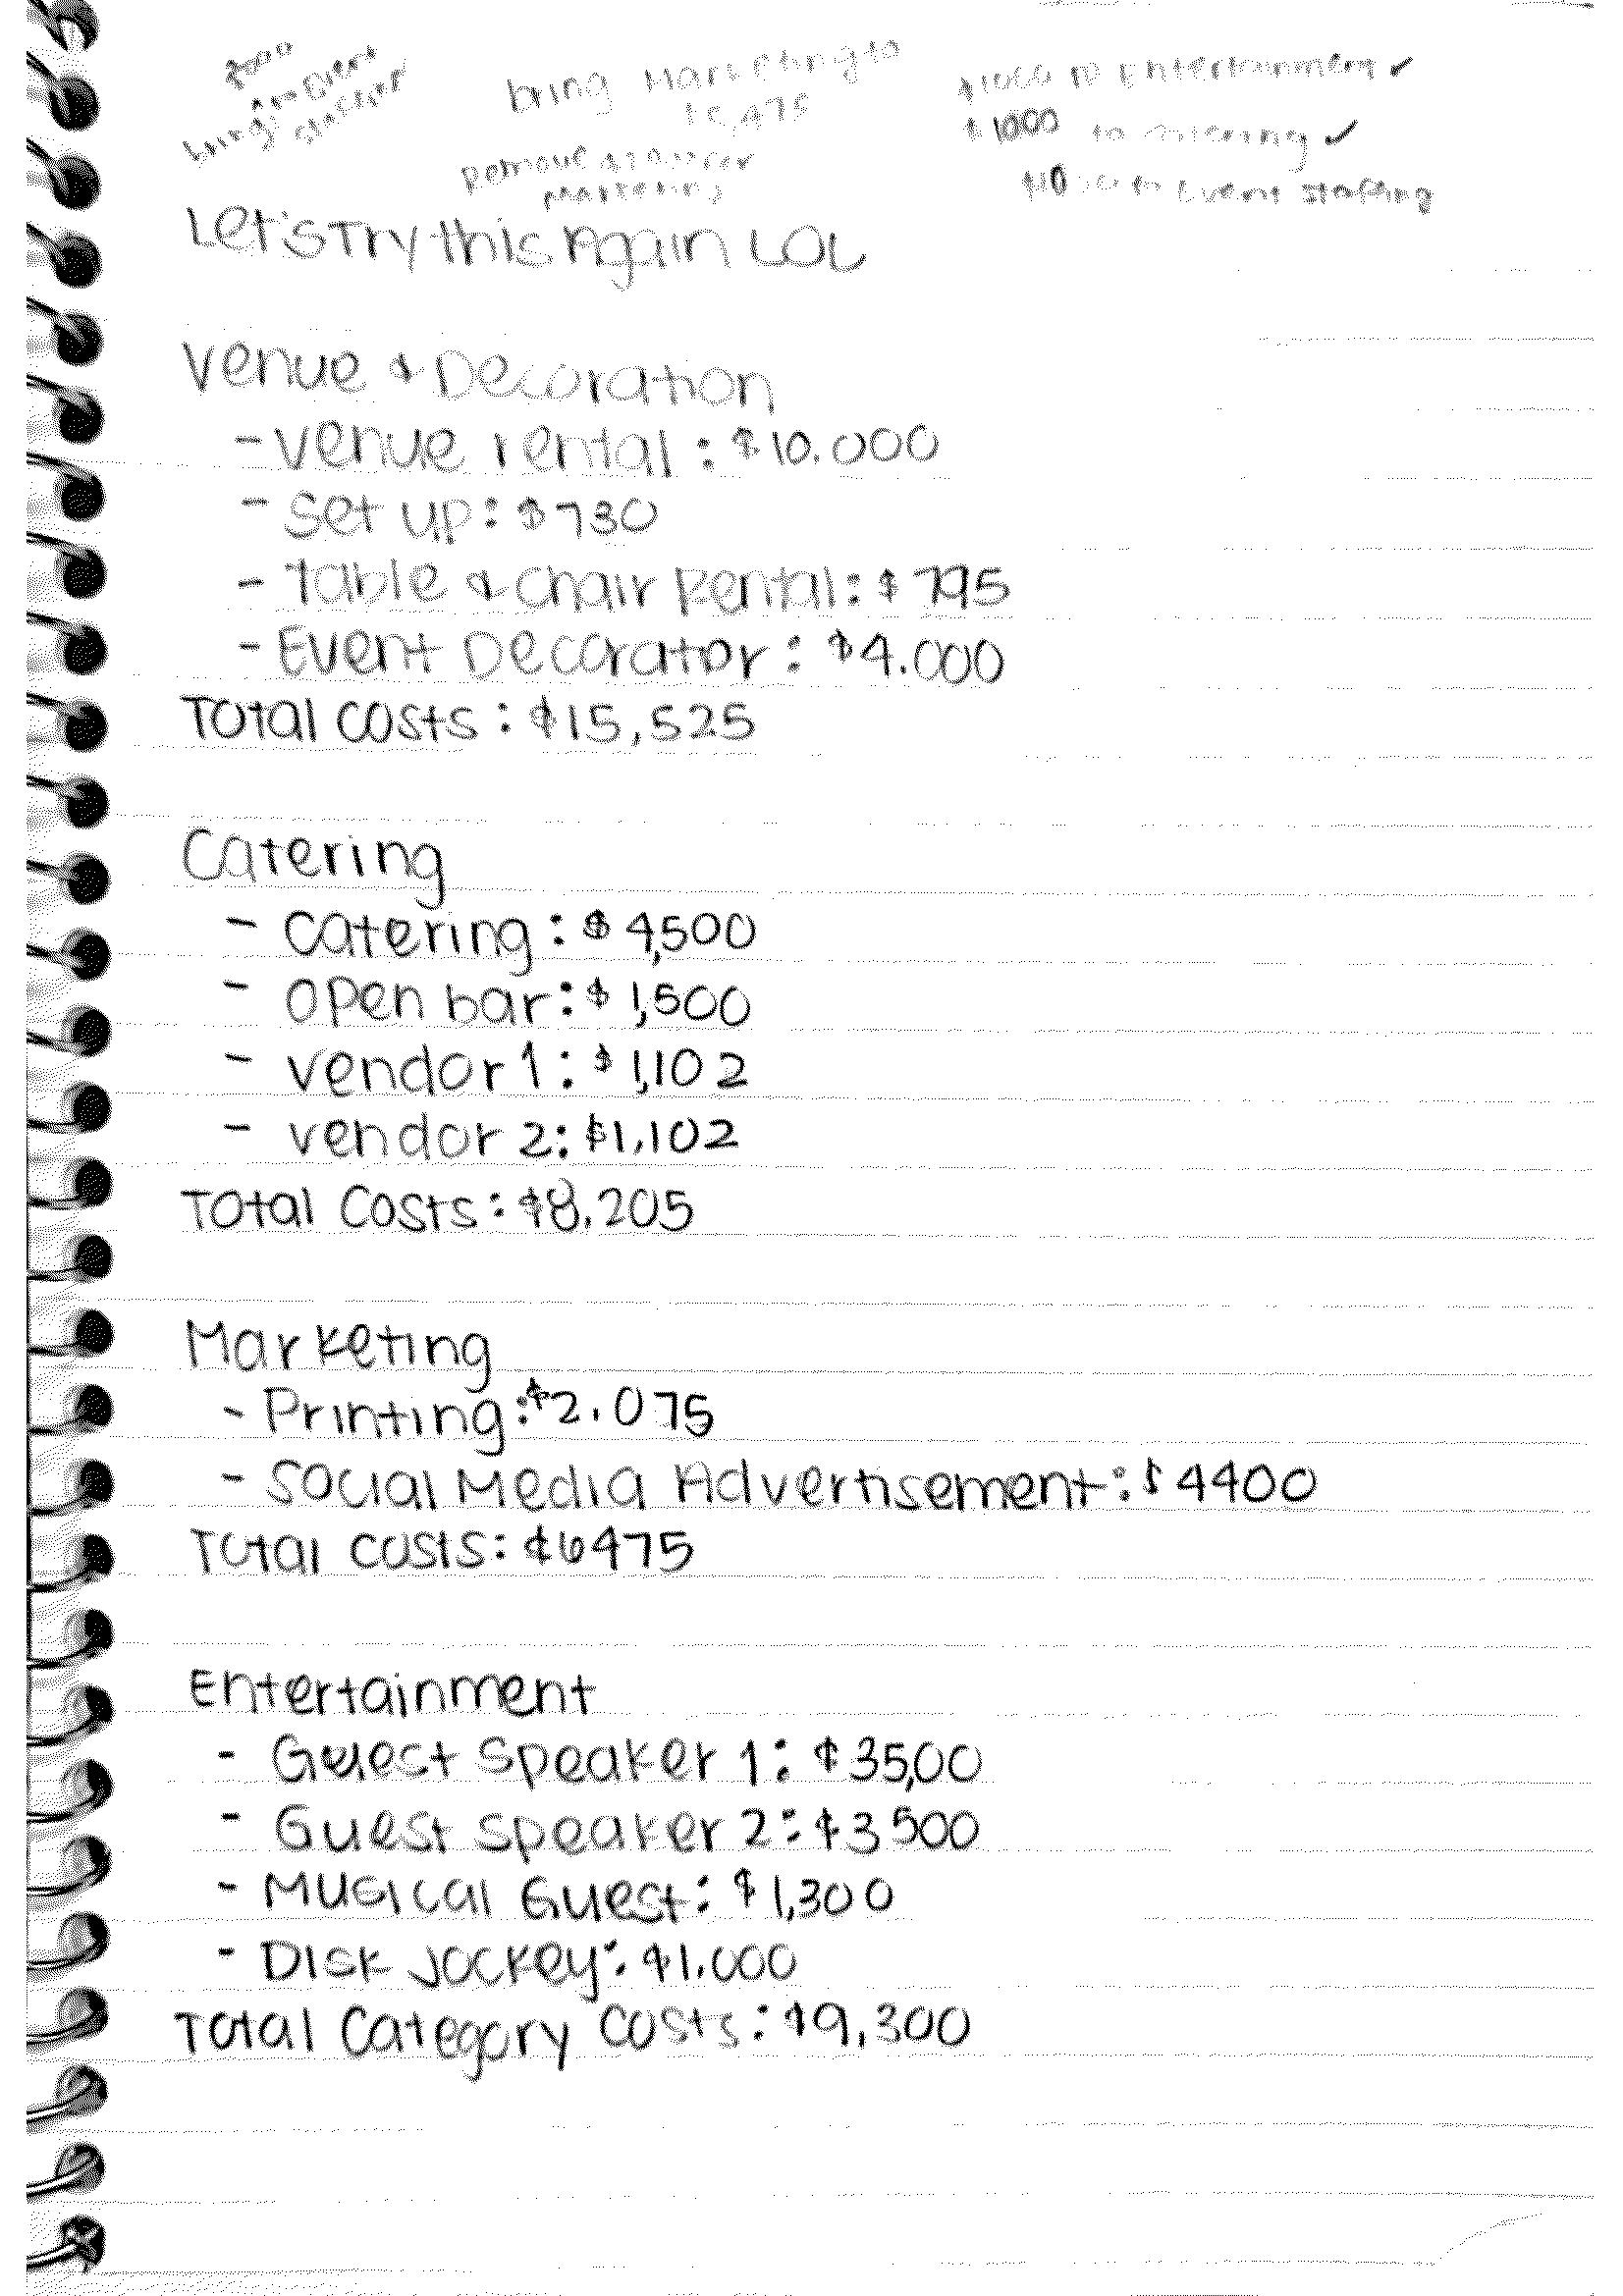 bring Marketing to
$1000 to Entertainment ✓
$1000 to catering ✓
to Event staffing
Remove
marketing
Let's Try this Again LOL
Venue & Decoration
- Venue rental: $10.000
- Set up: $730
- Table & Chair Rental: $795
- Event Decorator: $4.000
Total costs: $15,525
Catering
- Catering: $4,500
- open bar: $1,500
- vendor 1: $1,102
- vendor 2: $1,102
Total Costs: $8,205
Marketing
- Printing: $2,075
- Social Media Advertisement: $4400
Total costs: $6475
Entertainment
- Guest Speaker 1: $3500
- Guest Speaker 2: $3500
- Musical Guest: $1,300
- Disk Jockey: $1,000
Total Category Costs: $9,300